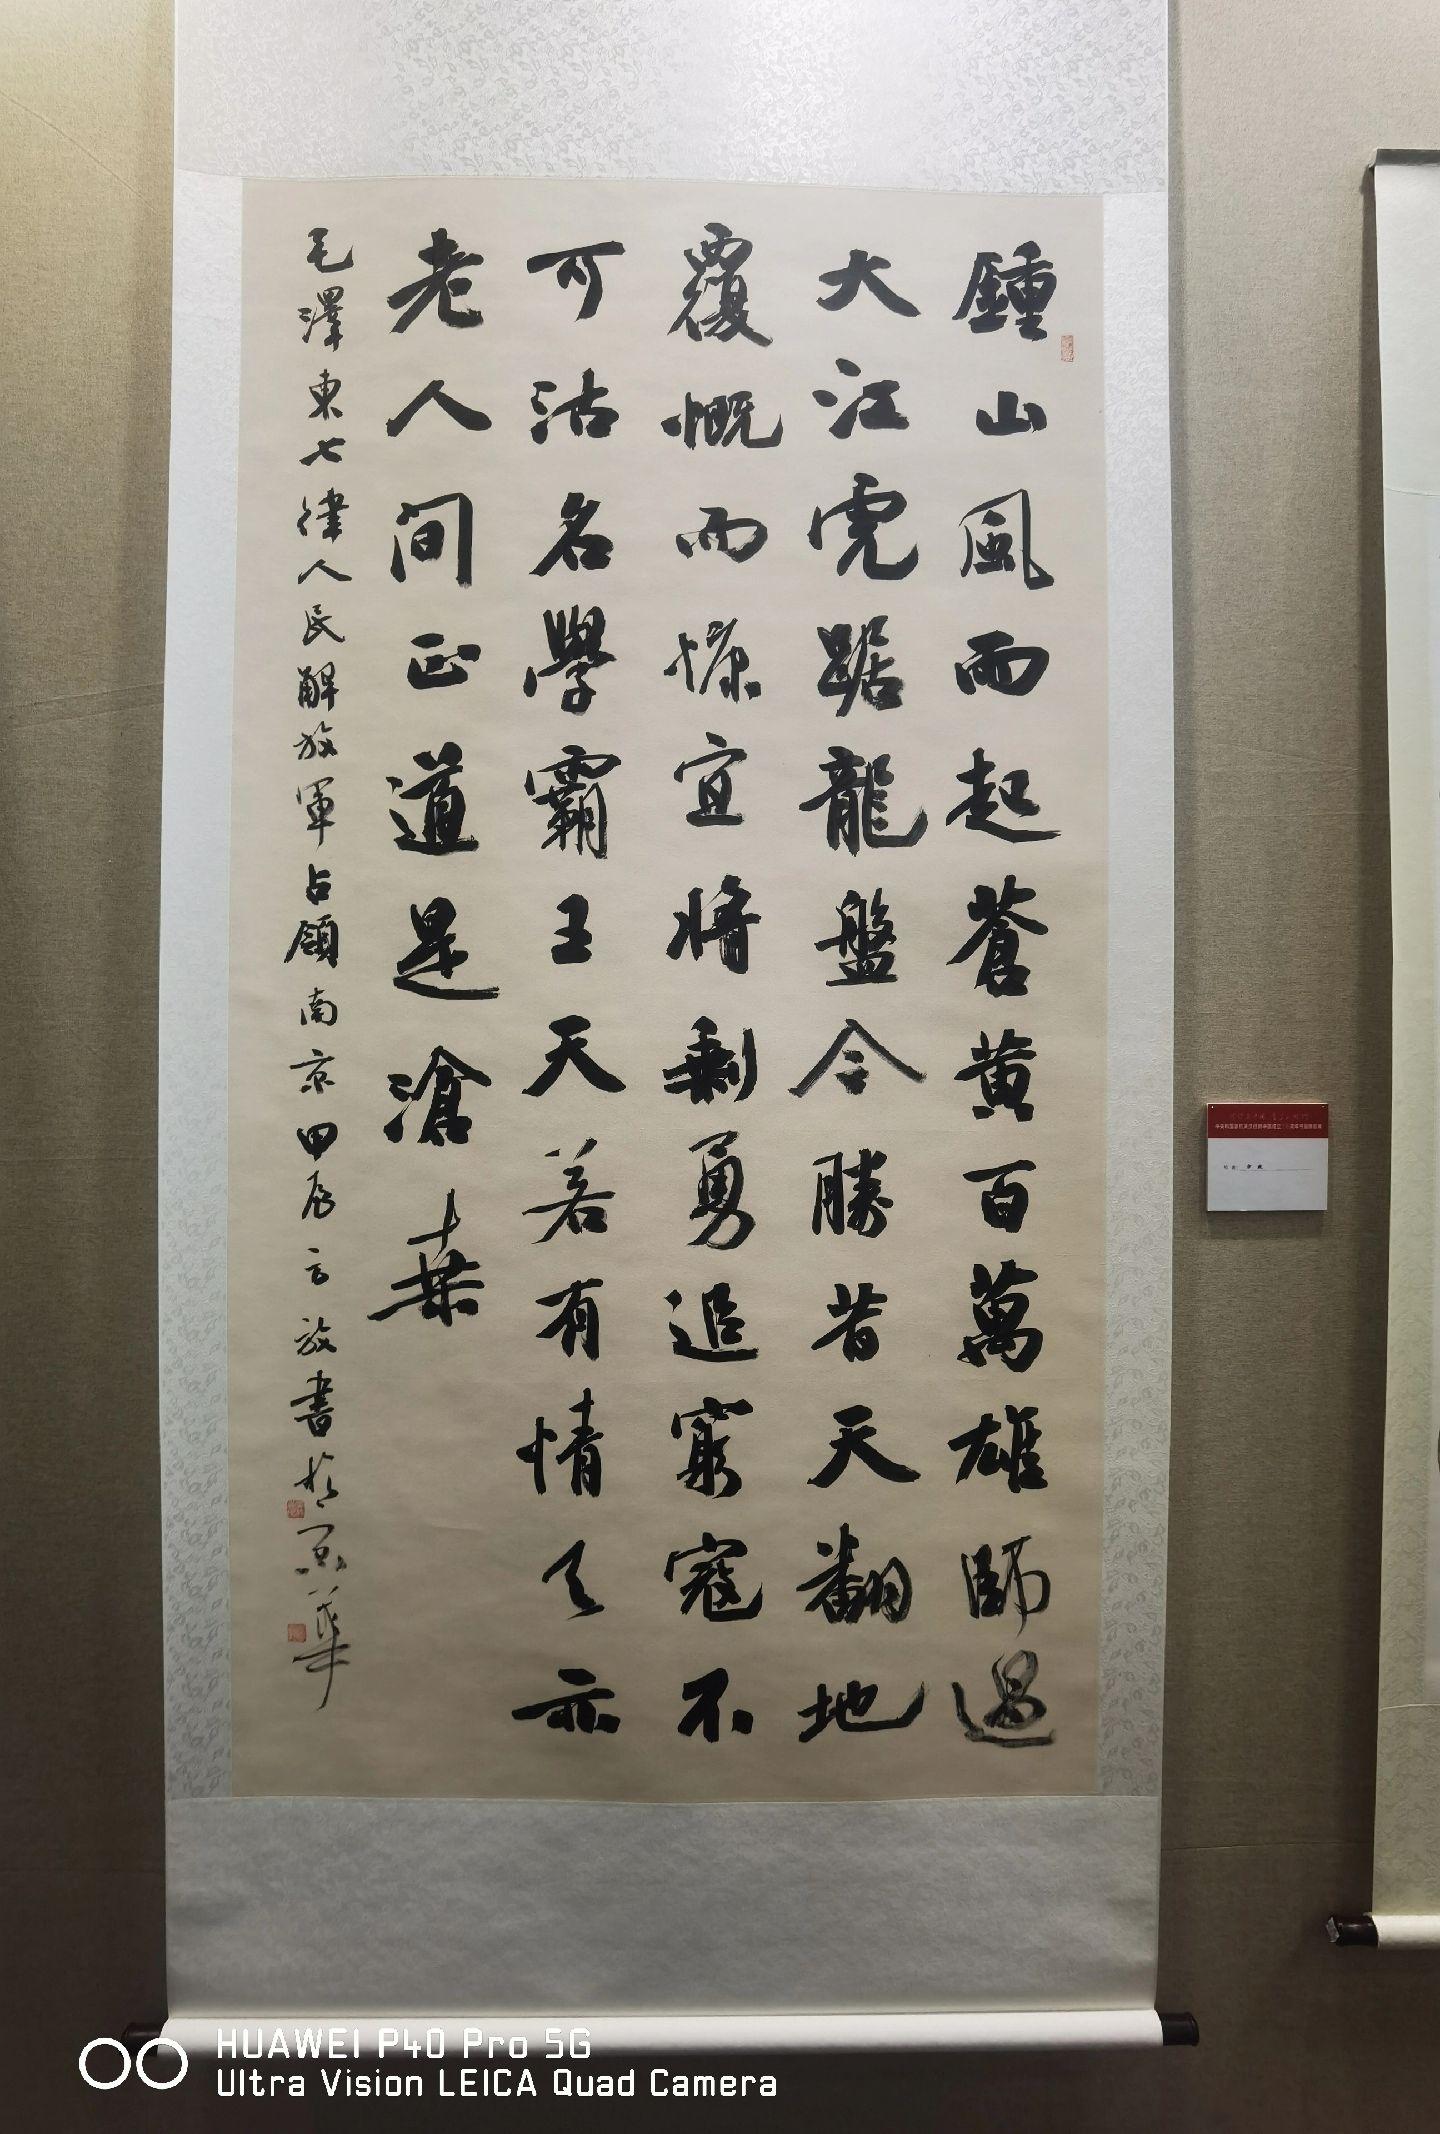 鍾山風雨起蒼黄百萬雄師過
大江虎踞龍盤今勝昔天翻地
覆慨而慷宜將剩勇追窮寇不
可沽名學霸王天若有情天亦
老人间正道是滄桑
毛澤東七律人民解放軍占領南京甲辰言放書於京華
HUAWEI P40 Pro 5G
Ultra Vision LEICA Quad Camera